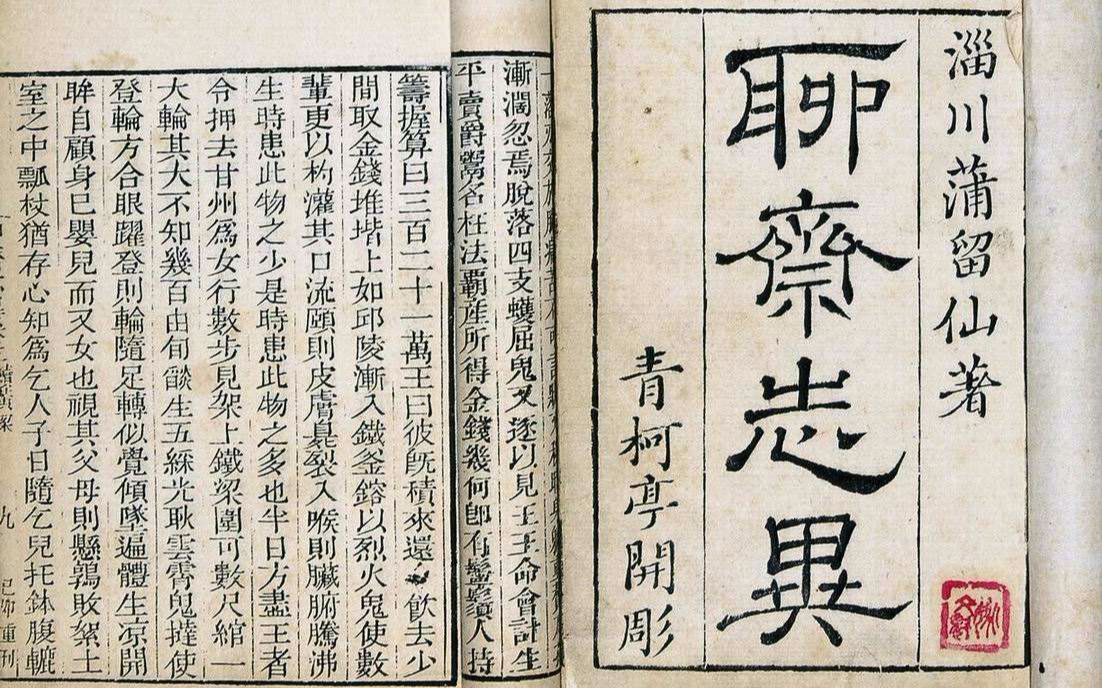 淄川蒲留仙著
聊齋志異
青柯亭開彫
漸濶忽焉脫落四支蠖屈鬼又逐以見王王命會計生
平賣爵鬻名枉法覇産所得金錢幾何卽有鬡鬚人持
籌握算曰三百二十一萬王曰彼旣積來還飮去少
間取金錢堆堦上如邱陵漸入鐵釜鎔以烈火鬼使數
輩更以杓灌其口流頤則皮膚臭裂入喉則臟腑騰沸
生時患此物之少是時患此物之多也半日方盡王者
令押去甘州爲女行數步見架上鐵梁圍可數尺綰一
大輪其大不知幾百由旬燄生五綵光耿雲霄鬼撻使
登輪方合眼躍登則輪隨足轉似覺傾墜遍體生凉開
眸自顧身巳嬰兒而又女也視其父母則懸鶉敗絮土
室之中瓢杖猶存心知爲乞人子日隨乞兒托鉢腹轆
九
己卯重刊